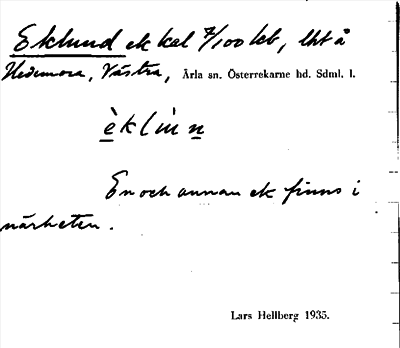 Eklund ek kal 7/100 kb, lht å
Hedemora, Västra, Ärla sn. Österrekarne hd. Sdml. l.
èklùn
En och annan ek finns i
närheten.
Lars Hellberg 1935.